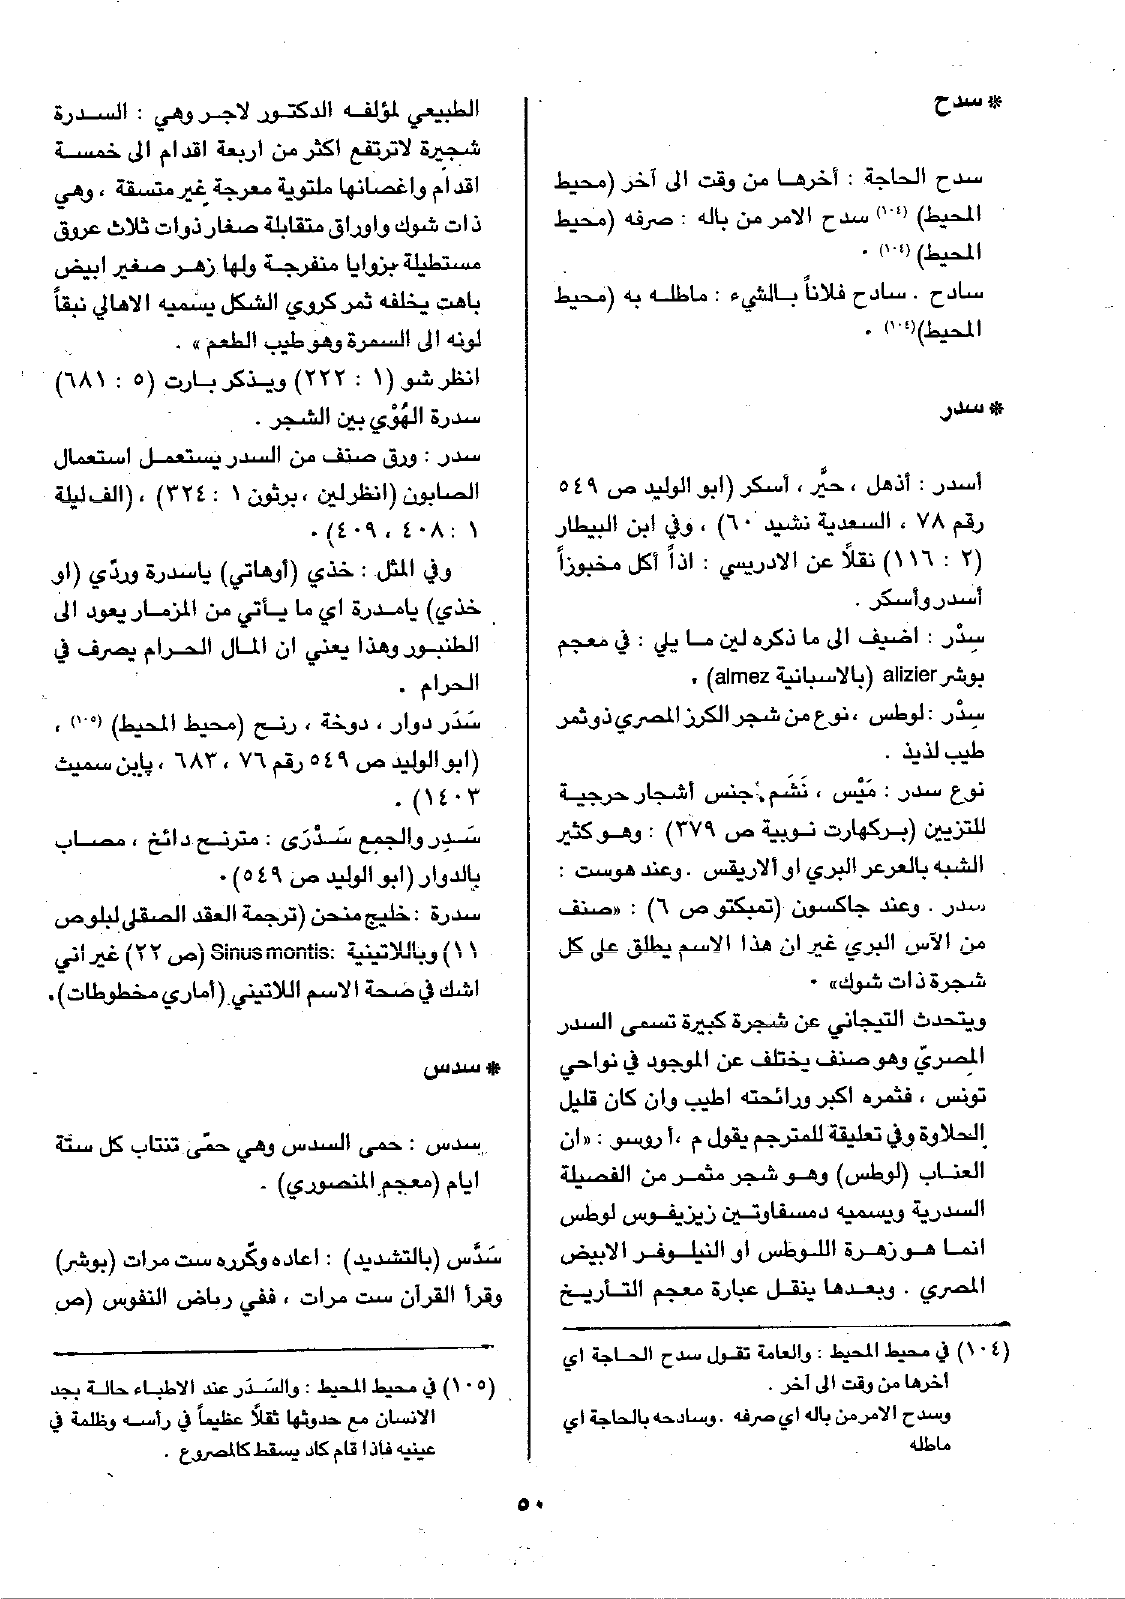 * سدح
سدح الحاجة : أخرها من وقت الى آخر (محيط
المحيط) (١٠٤) سدح الامر من باله : صرفه (محيط
المحيط) (١٠٤) .
سادح . سادح فلاناً بالشيء : ماطله به (محيط
المحيط)(١٠٤) .
* سدر
أسدر : أذهل ، حيَّر ، أسكر (ابو الوليد ص ٥٤٩
رقم ٧٨ ، السعدية نشيد ٦٠) ، وفي ابن البيطار
(٢ : ١١٦) نقلاً عن الادريسي : اذاً أكل مخبوزاً
أسدر وأسكر .
سِدْر : اضيف الى ما ذكره لين ما يلي : في معجم
بوشر alizier (بالاسبانية almez) .
سِدْر : لوطس ، نوع من شجر الكرز المصري ذو ثمر
طيب لذيذ .
نوع سدر : مَيْس ، نَشَم : جنس أشجار حرجية
للتزيين (بركهارت نوبية ص ٣٧٩) : وهو كثير
الشبه بالعرعر البري او ألاريقس . وعند هوست :
سدر . وعند جاكسون (تمبكتو ص ٦) : «صنف
من الآس البري غير ان هذا الاسم يطلق على كل
شجرة ذات شوك» .
ويتحدث التيجاني عن شجرة كبيرة تسمى السدر
المصريّ وهو صنف يختلف عن الموجود في نواحي
تونس ، فثمره اكبر ورائحته اطيب وان كان قليل
الحلاوة وفي تعليقة للمترجم يقول م ،أ روسو : «ان
العناب (لوطس) وهو شجر مثمر من الفصيلة
السدرية ويسميه دمسقاوتين زيزيفوس لوطس
انما هو زهرة اللوطس أو النيلوفر الابيض
المصري . وبعدها ينقل عبارة معجم التأريخ
(١٠٤) في محيط المحيط : والعامة تقول سدح الحاجة اي
أخرها من وقت الى آخر .
وسدح الامر من باله اي صرفه . وسادحه بالحاجة اي
ماطله
الطبيعي لمؤلفه الدكتور لاجر وهي : السدرة
شجيرة لاترتفع اكثر من اربعة اقدام الى خمسة
اقدام واغصانها ملتوية معرجة غير متسقة ، وهي
ذات شوك واوراق متقابلة صغار ذوات ثلاث عروق
مستطيلة بزوايا منفرجة ولها زهر صغير ابيض
باهت يخلفه ثمر كروي الشكل يسميه الاهالي نبقاً
لونه الى السمرة وهو طيب الطعم» .
انظر شو (١ : ٢٢٢) ويذكر بارت (٥ : ٦٨١)
سدرة الهُوْي بين الشجر .
سدر : ورق صنف من السدر يستعمل استعمال
الصابون (انظر لين ، برثون ١ : ٣٢٤) ، (الف ليلة
١ : ٤٠٨ ، ٤٠٩) .
وفي المثل : خذي (أوهاتي) ياسدرة وردّي (او
خذي) يامدرة اي ما يأتي من المزمار يعود الى
الطنبور وهذا يعني ان المال الحرام يصرف في
الحرام .
سَدَر دوار ، دوخة ، رنح (محيط المحيط) (١٠٥) ،
(ابو الوليد ص ٥٤٩ رقم ٧٦ ، ٦٨٣ ، پاين سميث
١٤٠٣) .
سَدِر والجمع سَدْرَى : مترنح دائخ ، مصاب
بالدوار (ابو الوليد ص ٥٤٩) .
سدرة : خليج منحن (ترجمة العقد الصقلي لبلوص
١١) وباللاتينية :Sinus montis (ص ٢٢) غير اني
اشك في صحة الاسم اللاتيني (أماري مخطوطات) .
* سدس
سدس : حمى السدس وهي حمّى تنتاب كل ستّة
ايام (معجم المنصوري) .
سَدَّس (بالتشديد) : اعاده وكّرره ست مرات (بوشر)
وقرأ القرآن ست مرات ، ففي رياض النفوس (ص
(١٠٥) في محيط المحيط : والسَّدَر عند الاطباء حالة يجد
الانسان مع حدوثها ثقلاً عظيماً في رأسه وظلمة في
عينيه فاذا قام كاد يسقط كالمصروع .
٥٠